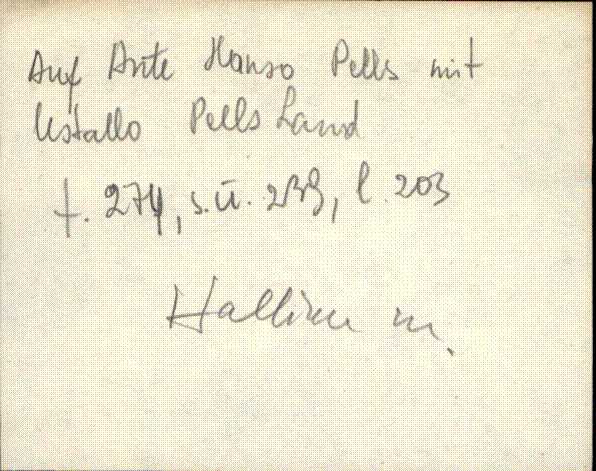 Auf Ante Hanso Pells mit
Ustallo Pells Land
f. 274, s.ü. 239, l. 203
Halliku m.